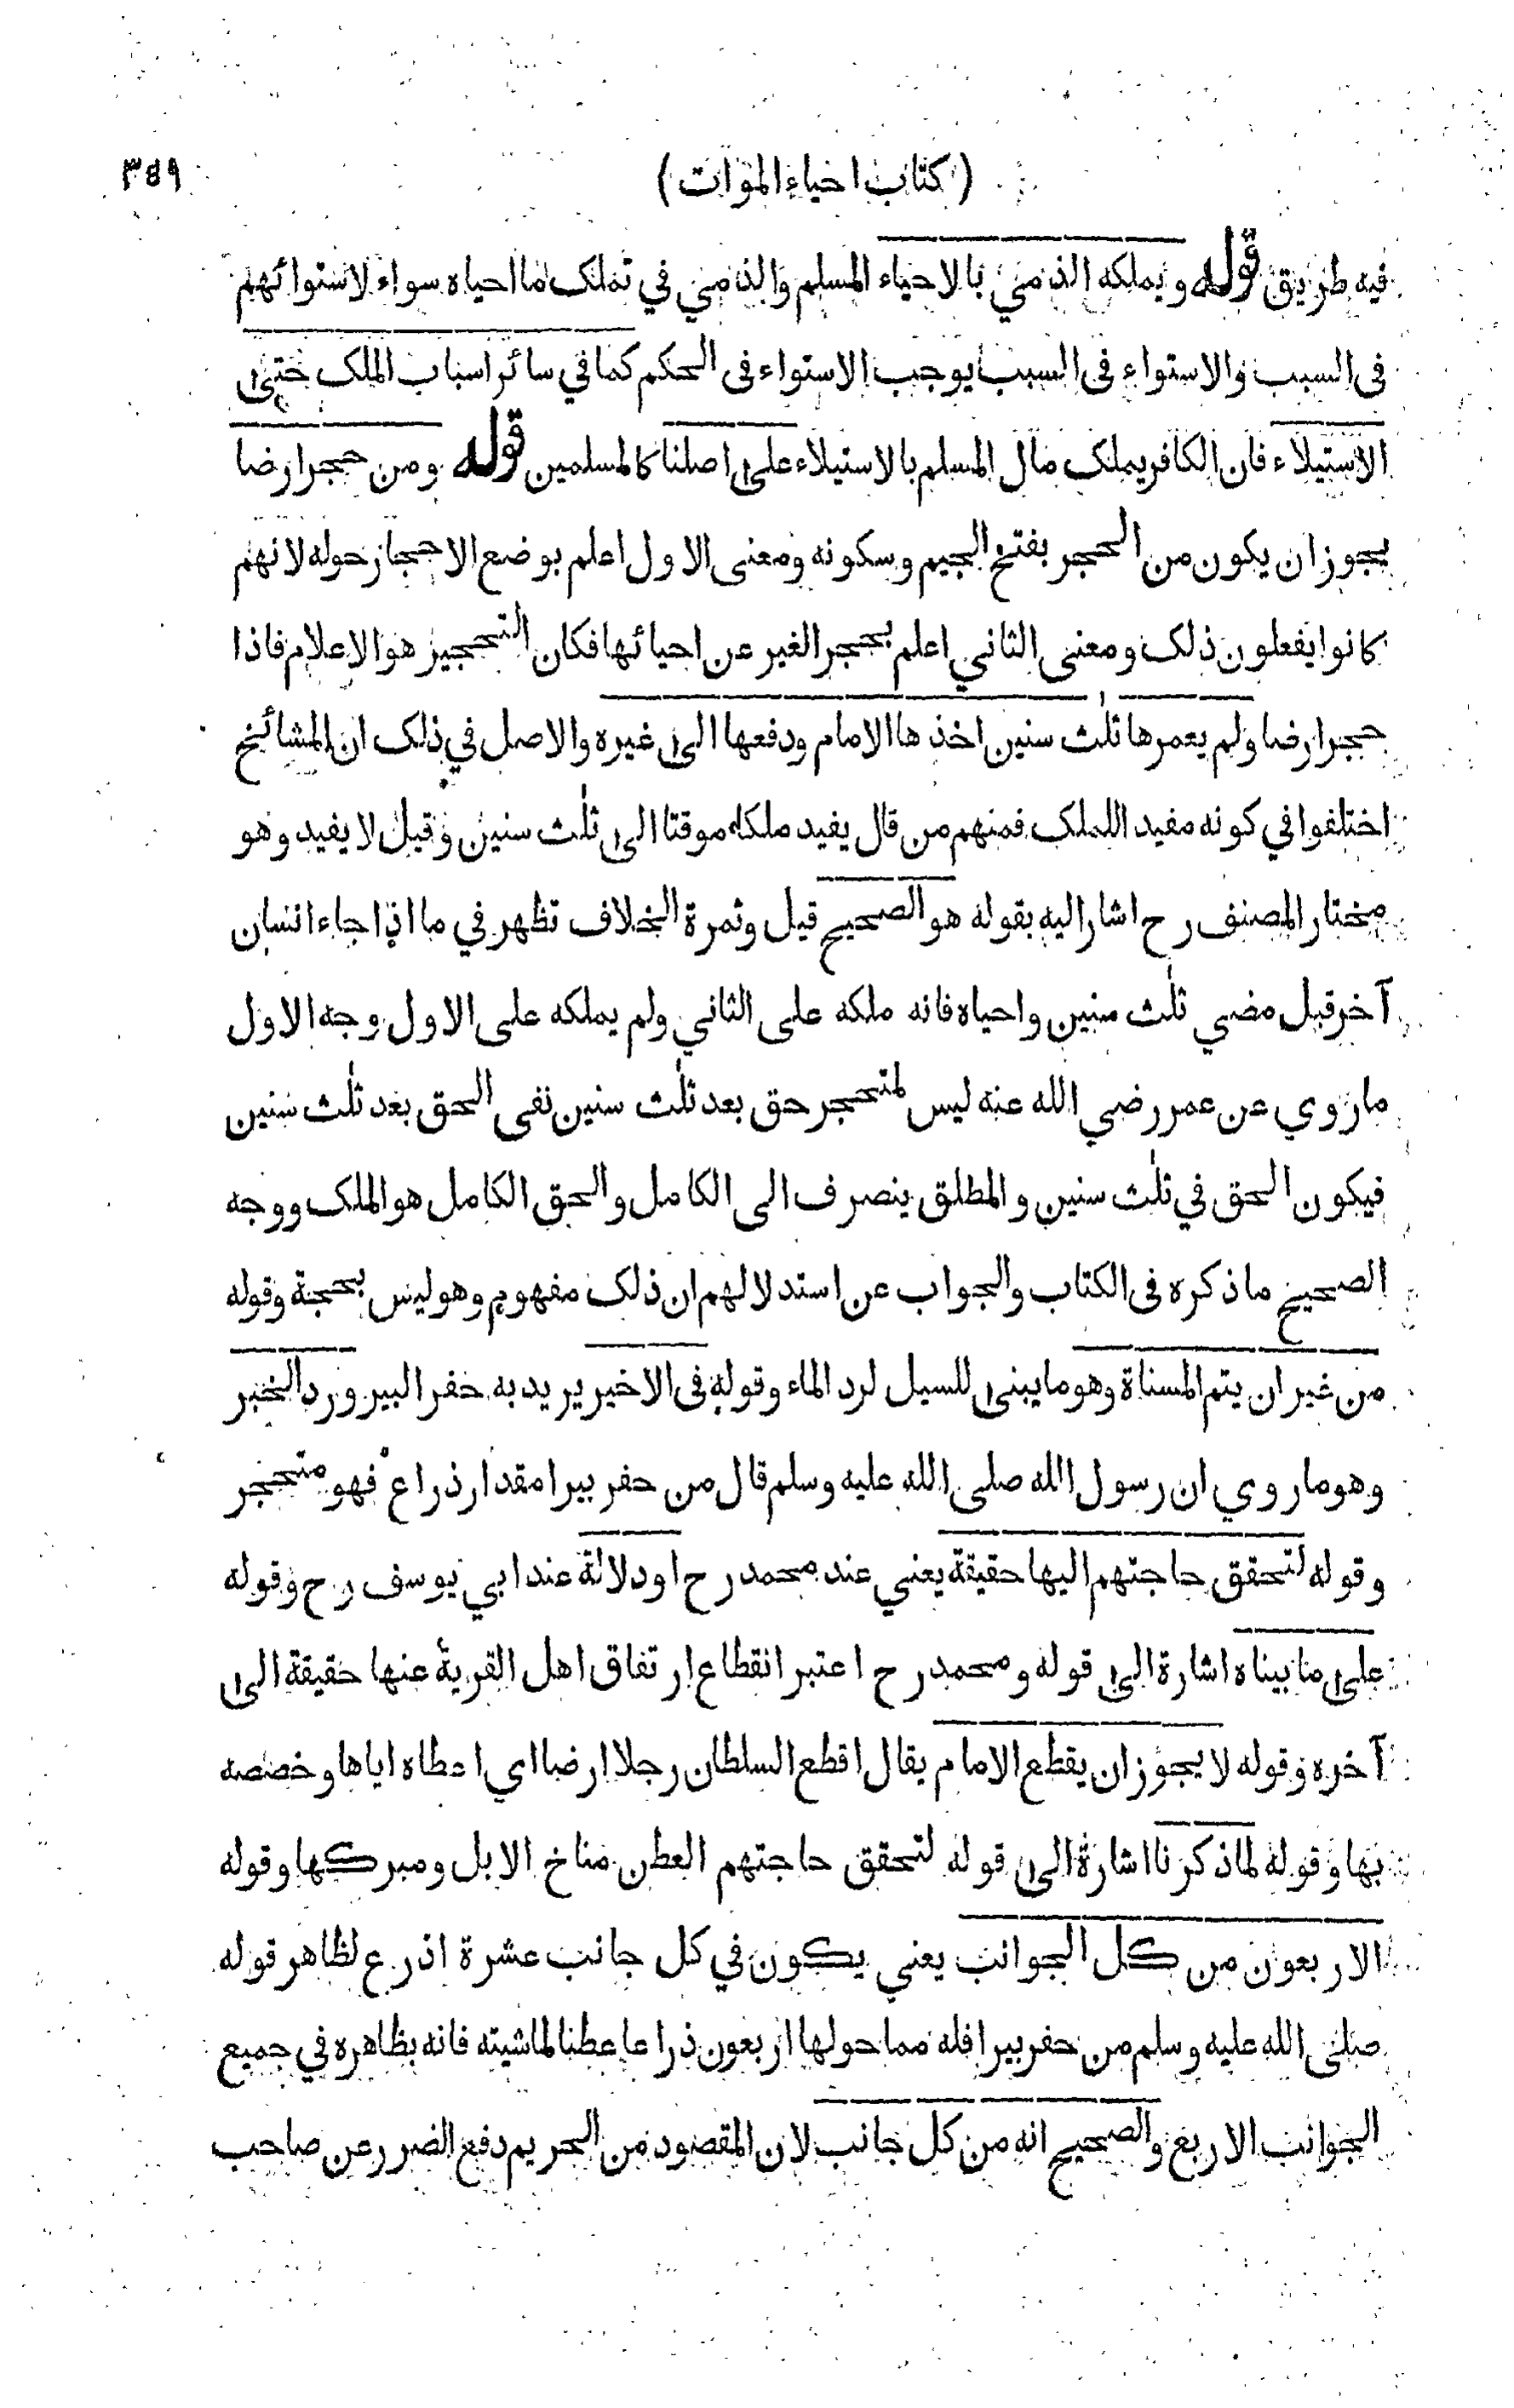 ( كتاب احياء الموات ) ٣٤٩
فيه طريق قوله ويملكه الذمي بالاحياء المسلم والذمي في تملك ما احياه سواء لاستوائهم
فى السبب والاستواء فى السبب يوجب الاستواء فى الحكم كما في سائر اسباب الملك حتى
الاستيلاء فان الكافر يملك مال المسلم بالاستيلاء على اصلنا كالمسلمين قوله ومن حجر ارضا
يجوز ان يكون من الحجر بفتح الجيم وسكونه ومعنى الاول اعلم بوضع الاحجار حوله لانهم
كانوا يفعلون ذلك ومعنى الثاني اعلم بحجر الغير عن احيائها فكان التحجير هو الاعلام فاذا
حجر ارضا ولم يعمرها ثلٰث سنين اخذها الامام ودفعها الى غيره والاصل في ذلك ان المشائخ
اختلفوا في كونه مفيد اللملك فمنهم من قال يفيد ملكا موقتا الى ثلٰث سنين وقيل لا يفيد وهو
مختار المصنف رح اشار اليه بقوله هو الصحيح قيل وثمرة الخلاف تظهر في ما اذا جاء انسان
آخر قبل مضي ثلٰث سنين واحياه فانه ملكه على الثاني ولم يملكه على الاول وجه الاول
ما روي عن عمر رضي الله عنه ليس لمتحجر حق بعد ثلٰث سنين نفى الحق بعد ثلٰث سنين
فيكون الحق في ثلٰث سنين والمطلق ينصرف الى الكامل والحق الكامل هو الملك ووجه
الصحيح ما ذكره فى الكتاب والجواب عن استدلالهم ان ذلك مفهوم وهو ليس بحجة وقوله
من غير ان يتم المسناة وهو ما يبنى للسيل لرد الماء وقوله فى الاخير يريد به حفر البير ورد الخبر
وهو ما روي ان رسول الله صلى الله عليه وسلم قال من حفر بيرا مقدار ذراع فهو متحجر
وقوله لتحقق حاجتهم اليها حقيقة يعني عند محمد رح او دلالة عند ابي يوسف رح وقوله
على ما بيناه اشارة الى قوله ومحمد رح اعتبر انقطاع ارتفاق اهل القرية عنها حقيقة الى
آخره وقوله لا يجوز ان يقطع الامام يقال اقطع السلطان رجلا ارضا اي اعطاه اياها وخصصه
بها وقوله لما ذكرنا اشارة الى قوله لتحقق حاجتهم العطن مناخ الابل ومبركها وقوله
الاربعون من كل الجوانب يعني يكون في كل جانب عشرة اذرع لظاهر قوله
صلى الله عليه وسلم من حفر بيرا فله مما حولها اربعون ذراعا عطنا لماشيته فانه بظاهره في جميع
الجوانب الاربع والصحيح انه من كل جانب لان المقصود من الحريم دفع الضرر عن صاحب